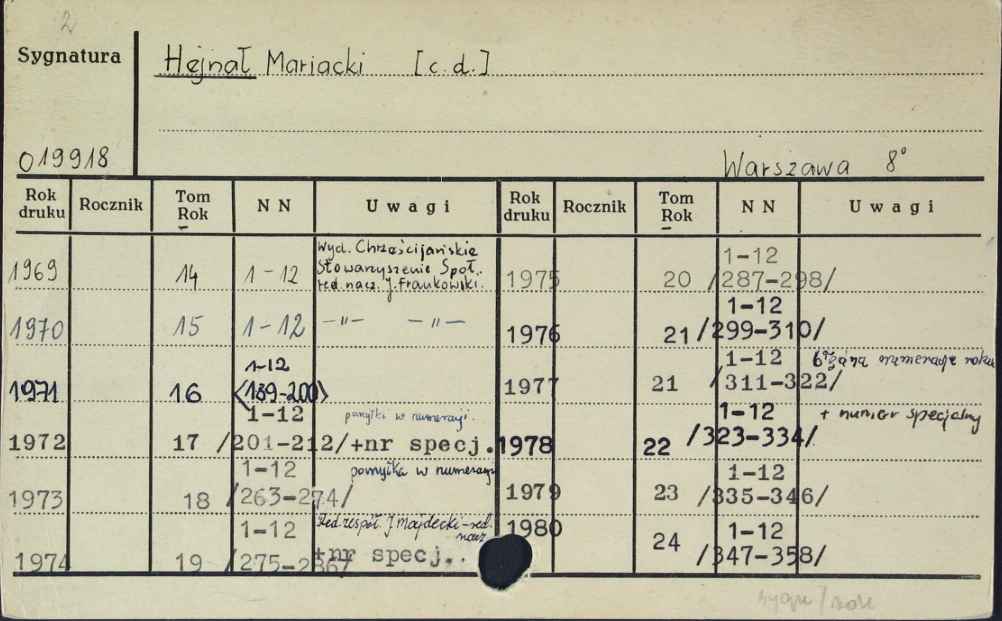 2
Sygnatura
Hejnał Mariacki [c.d.]
019918
Warszawa 8°
Rok druku Rocznik Tom Rok NN Uwagi Rok druku Rocznik Tom Rok NN Uwagi
1969 14 1-12 Wyd. Chrześcijańskie
Stowarzyszenie Społ..
red. nacz. J. Frankowski.
1970 15 1-12 -"- -"-
1971 16 1-12
<189-200>
1972 17 1-12 pomyłki w numeracji.
/201-212/+nr specj.
1973 18 1-12 pomyłka w numeracji
/263-274/
1974 19 1-12 Red. zespół. J Majdecki-red.
nacz.
/275-2867 +nr specj..
1975 20 1-12
/287-298/
1976 21 1-12
/299-310/
1977 21 1-12 numeracja roku
/311-322/
1978 22 1-12 + numer specjalny
/323-334/
1979 23 1-12
/335-346/
1980 24 1-12
/347-358/